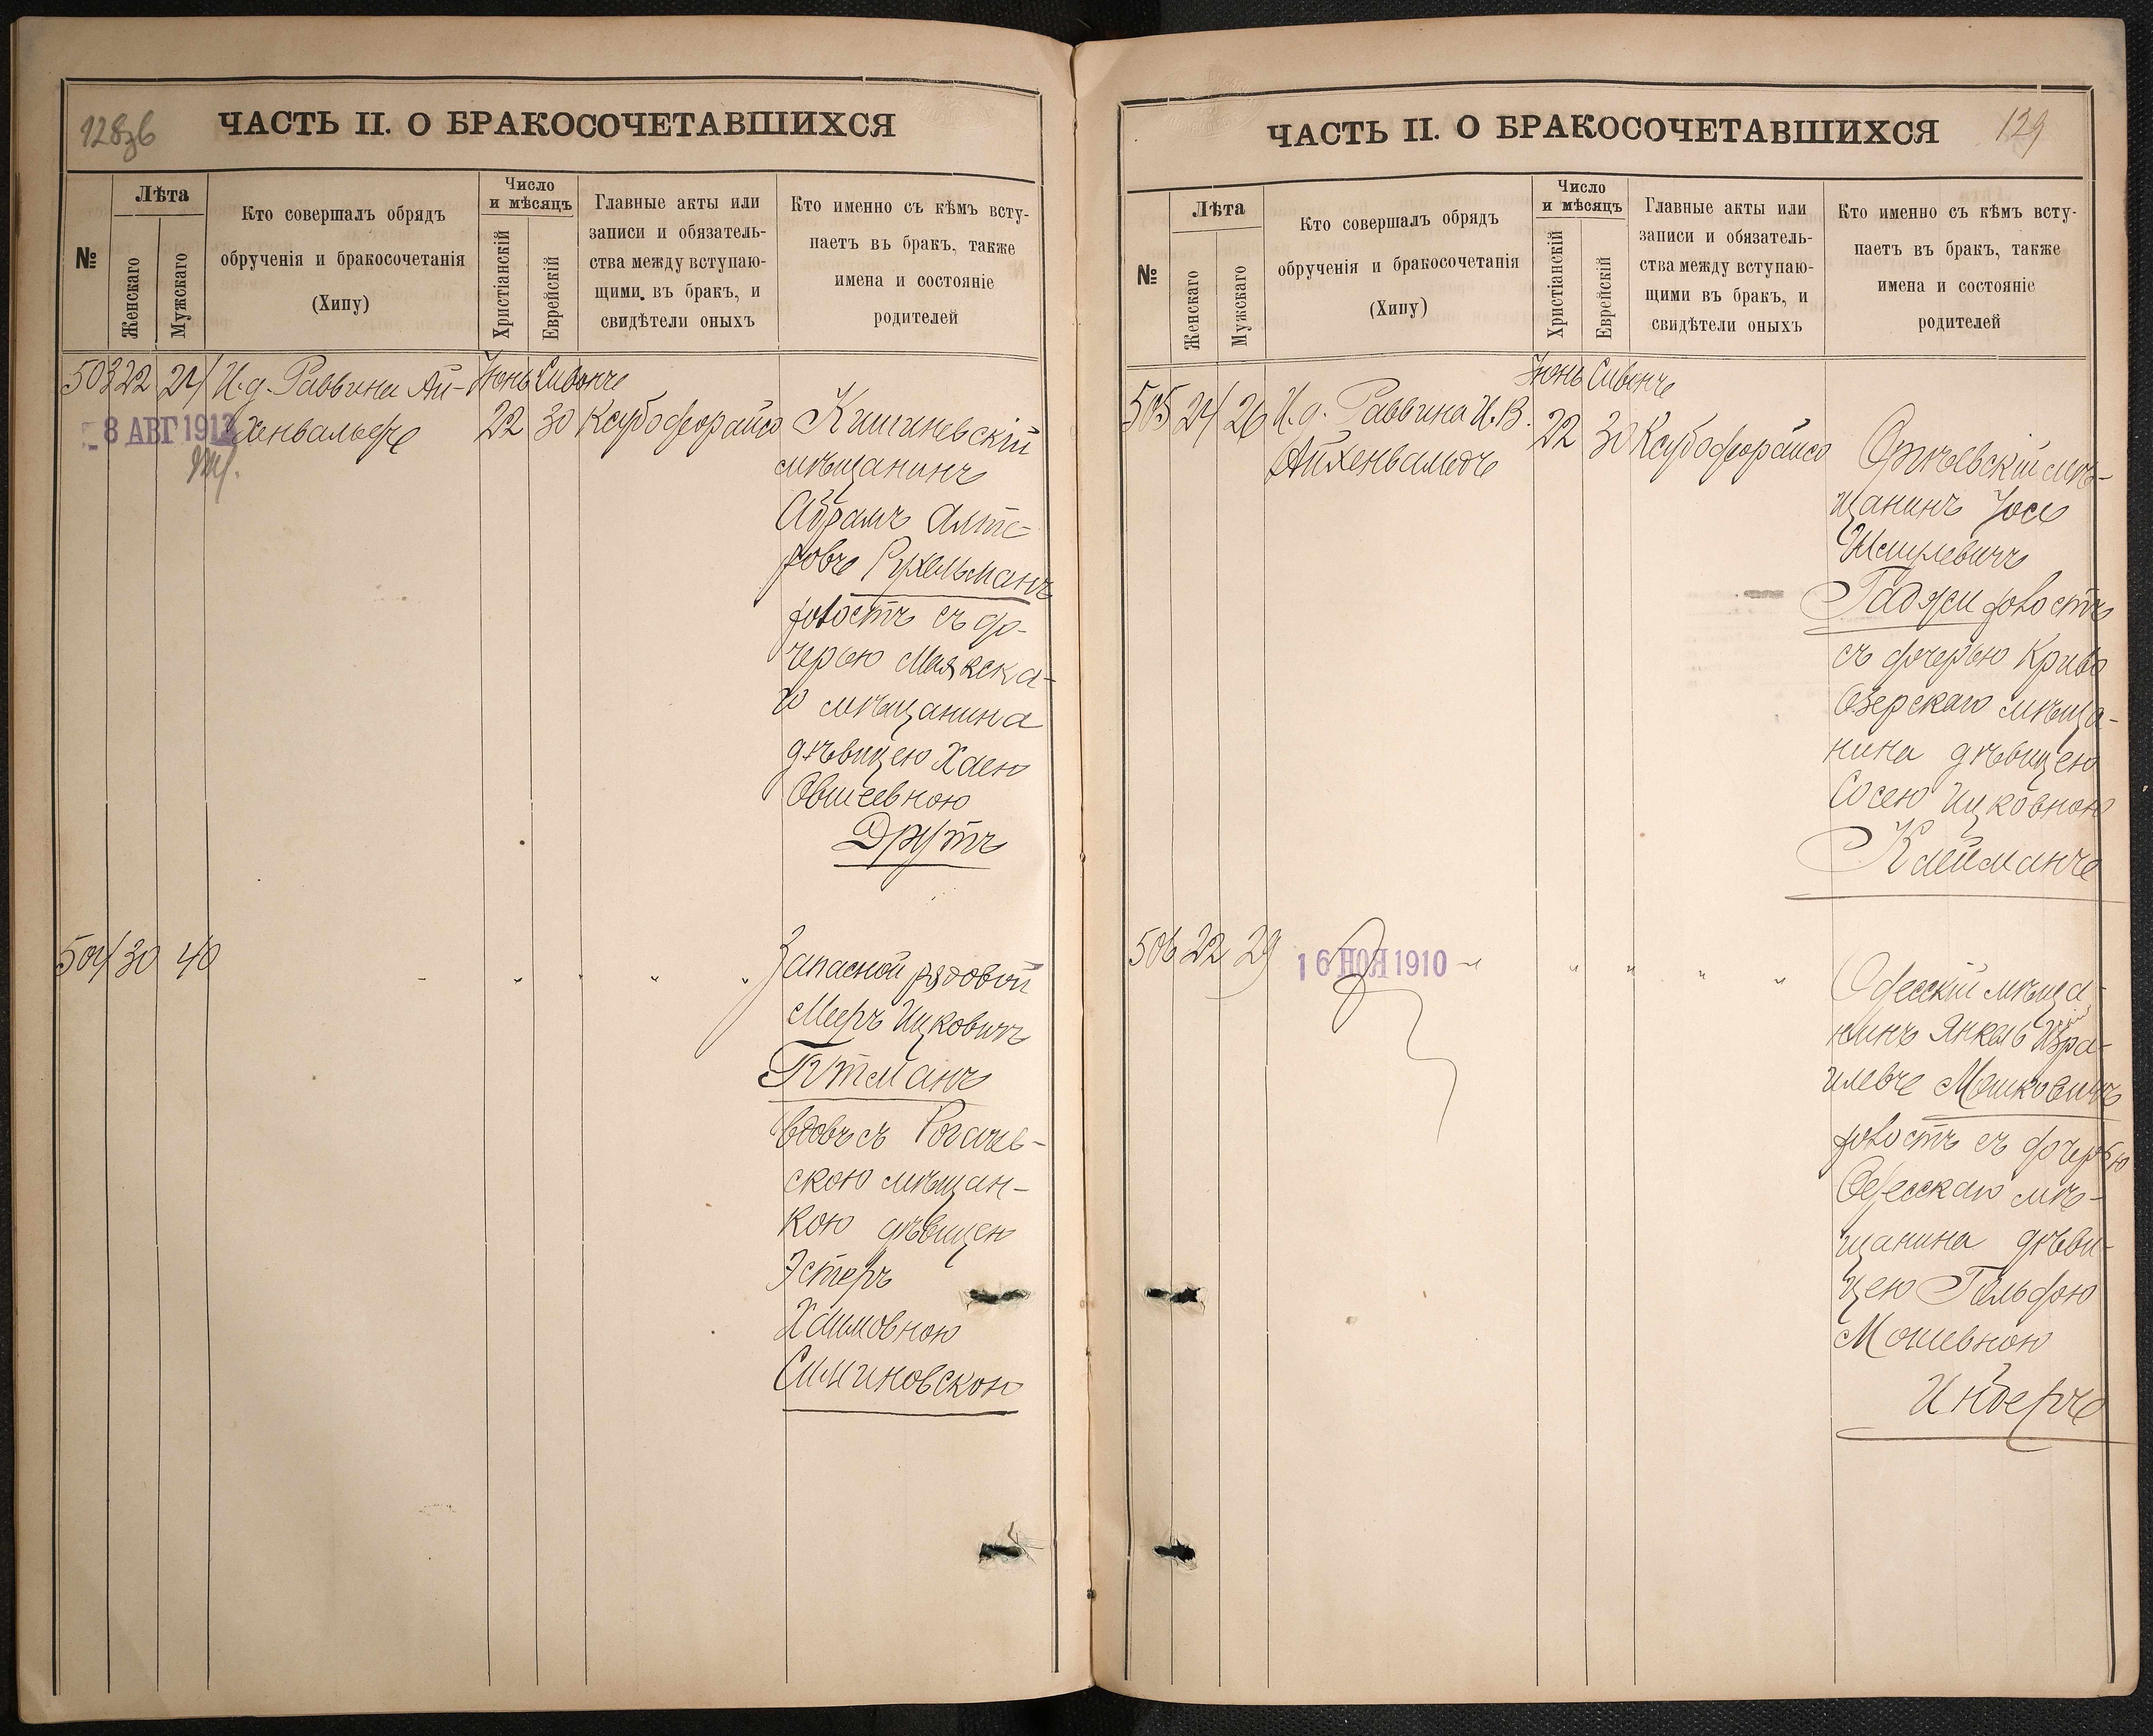 128об
ЧАСТЬ II. О БРАКОСОЧЕТАВШИХСЯ
№
Лѣта
Женскаго
Мужскаго
Кто совершалъ обрядъ
обрученія и бракосочетанія
(Хипу)
Число
и мѣсяцъ
Христіанскій
Еврейскій
Главные акты или
записи и обязатель-
ства между вступаю-
щими въ бракъ, и
свидѣтели оныхъ
Кто именно съ кѣмъ всту-
паетъ въ бракъ, также
имена и состояніе
родителей
503 22 24 И.д. Раввина Ай-
хенвальдъ
8 АВГ 1913
Іюнь Сивонъ
22 30 Ксубофдорайсо
Кишиневскій
мѣщанинъ
Абрамъ Алте-
ровъ Рухельманъ
холостъ съ до-
черью Маякска-
го мѣщанина
дѣвицею Хаею
Овшеевною
Друтъ
504 30 40 - " " " "
Запасной рядовой
Мееръ Ицковичъ
Гутманъ
вдовъ съ Рогачев-
скою мѣщан-
кою дѣвицею
Эстеръ
Хаимовною
Симиновскою
129
ЧАСТЬ II. О БРАКОСОЧЕТАВШИХСЯ
№
Лѣта
Женскаго
Мужскаго
Кто совершалъ обрядъ
обрученія и бракосочетанія
(Хипу)
Число
и мѣсяцъ
Христіанскій
Еврейскій
Главные акты или
записи и обязатель-
ства между вступаю-
щими въ бракъ, и
свидѣтели оныхъ
Кто именно съ кѣмъ всту-
паетъ въ бракъ, также
имена и состояніе
родителей
505 24 26 И.д. Раввина И.В.
Айхенвальдъ
Іюнь Сивонъ
22 30 Ксубофдорайсо
Оргѣевскій мѣ-
щанинъ Іосе
Шмулевичъ
Гаджи холостъ
съ дочерью Криво
Озерскаго мѣща-
нина дѣвицею
Сосею Ицковною
Клейманъ
506 22 29 16 НОЯ 1910 " " " " "
Одесскій мѣща-
нинъ Янкель Изра-
илевъ Мошковичъ
холостъ съ дочерью
Одесскаго мѣ-
щанина дѣви-
цею Гольдою
Мошевною
Индеръ